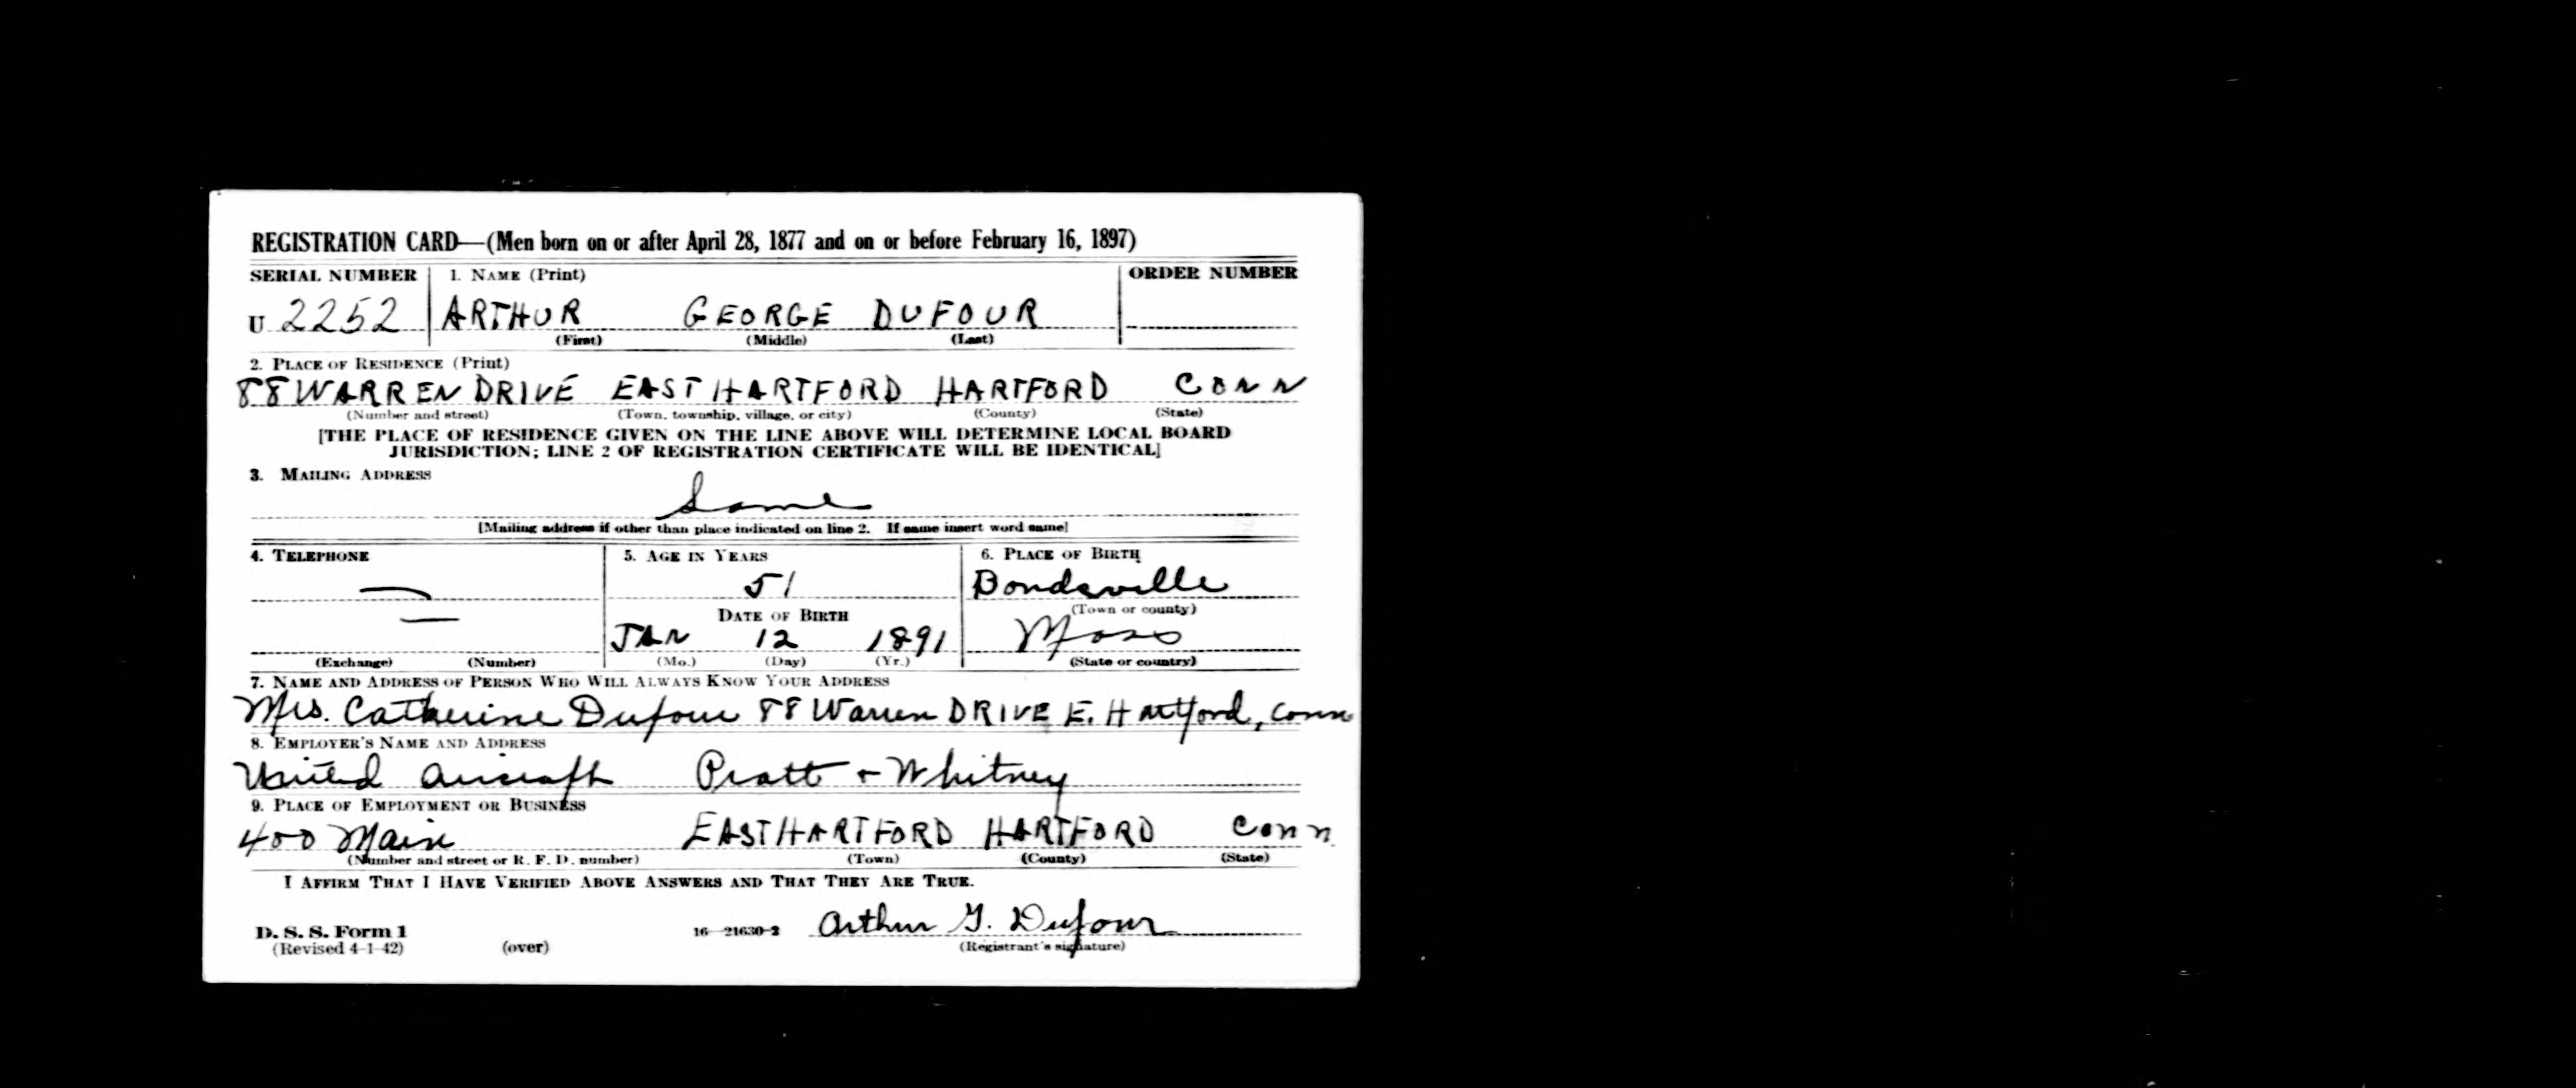 REGISTRATION CARD—(Men born on or after April 28, 1877 and on or before February 16, 1897)
SERIAL NUMBER 1. NAME (Print) ORDER NUMBER
U 2252 ARTHUR GEORGE DUFOUR
(First) (Middle) (Last)
2. PLACE OF RESIDENCE (Print)
88 WARREN DRIVE EAST HARTFORD HARTFORD CONN
(Number and street) (Town, township, village, or city) (County) (State)
[THE PLACE OF RESIDENCE GIVEN ON THE LINE ABOVE WILL DETERMINE LOCAL BOARD
JURISDICTION; LINE 2 OF REGISTRATION CERTIFICATE WILL BE IDENTICAL]
3. MAILING ADDRESS
Same
[Mailing address if other than place indicated on line 2. If same insert word same]
4. TELEPHONE 5. AGE IN YEARS 6. PLACE OF BIRTH
51 Bondsville
DATE OF BIRTH (Town or county)
JAN 12 1891 Mass
(Exchange) (Number) (Mo.) (Day) (Yr.) (State or country)
7. NAME AND ADDRESS OF PERSON WHO WILL ALWAYS KNOW YOUR ADDRESS
Mrs. Catherine Dufour 88 Warren DRIVE E. Hartford, Conn
8. EMPLOYER'S NAME AND ADDRESS
United Aircraft Pratt + Whitney
9. PLACE OF EMPLOYMENT OR BUSINESS
400 Main EAST HARTFORD HARTFORD Conn.
(Number and street or R. F. D. number) (Town) (County) (State)
I AFFIRM THAT I HAVE VERIFIED ABOVE ANSWERS AND THAT THEY ARE TRUE.
D. S. S. Form 1 16—21630-2 Arthur G. Dufour
(Revised 4-1-42) (over) (Registrant's signature)